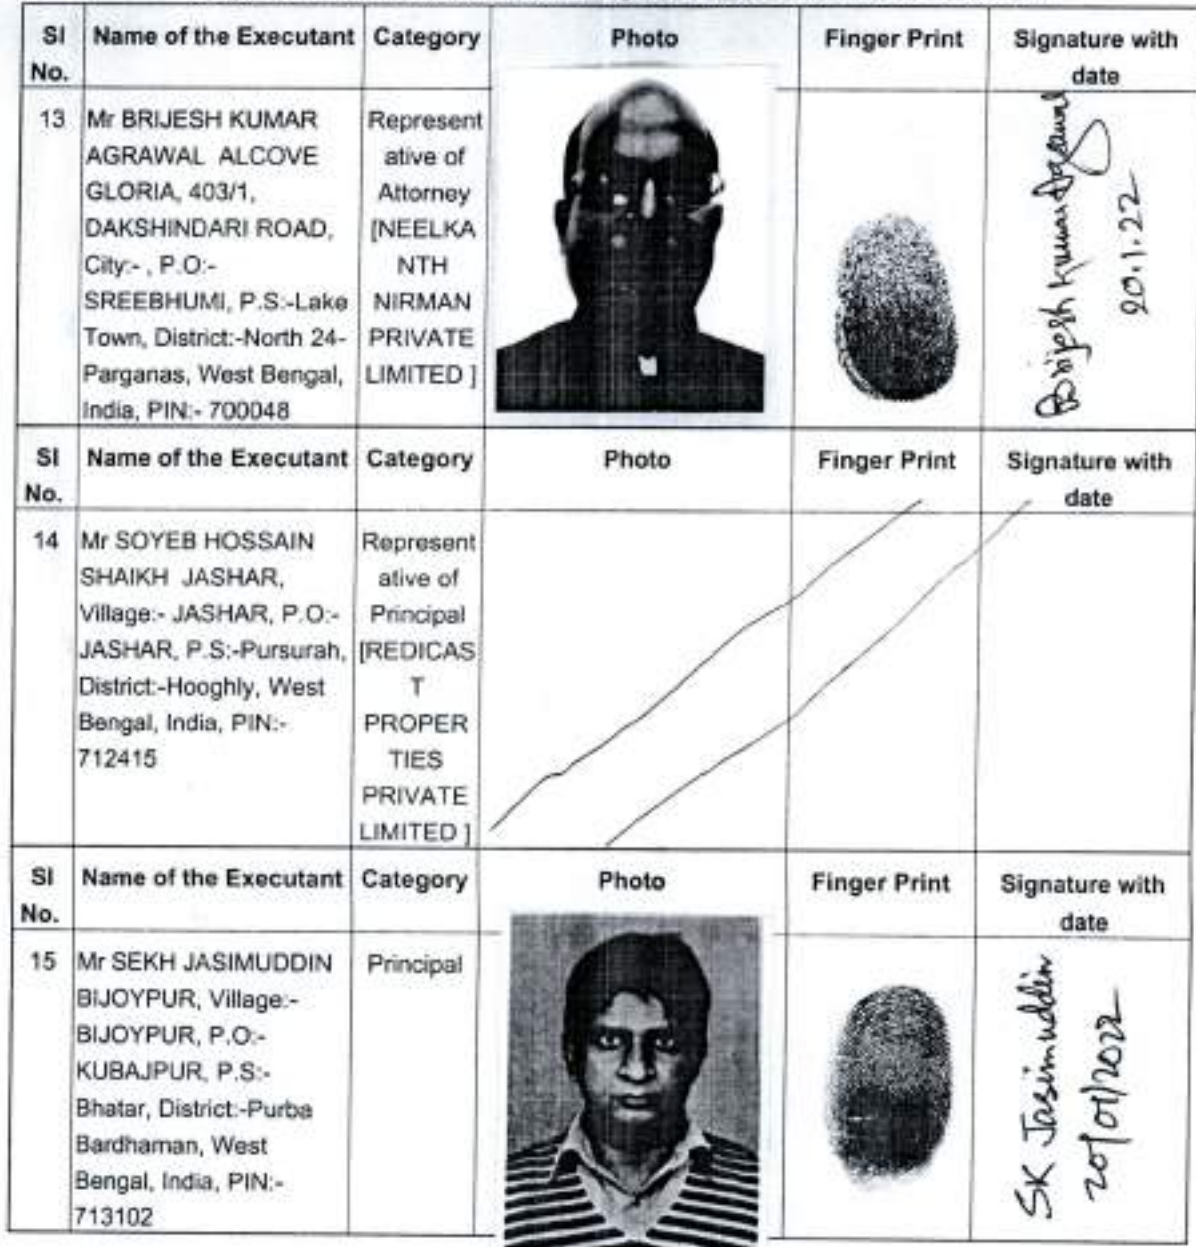 Sl No.
Name of the Executant
Category
Photo
Finger Print
Signature with date
13
Mr BRIJESH KUMAR
AGRAWAL ALCOVE
GLORIA, 403/1,
DAKSHINDARI ROAD,
City:- , P.O:-
SREEBHUMI, P.S:-Lake
Town, District:-North 24-
Parganas, West Bengal,
India, PIN:- 700048
Represent
ative of
Attorney
[NEELKA
NTH
NIRMAN
PRIVATE
LIMITED ]
Brijesh Kumar Agrawal
20.1.22
Sl No.
Name of the Executant
Category
Photo
Finger Print
Signature with date
14
Mr SOYEB HOSSAIN
SHAIKH JASHAR,
Village:- JASHAR, P.O:-
JASHAR, P.S:-Pursurah,
District:-Hooghly, West
Bengal, India, PIN:-
712415
Represent
ative of
Principal
[REDICAS
T
PROPER
TIES
PRIVATE
LIMITED ]
Sl No.
Name of the Executant
Category
Photo
Finger Print
Signature with date
15
Mr SEKH JASIMUDDIN
BIJOYPUR, Village:-
BIJOYPUR, P.O:-
KUBAJPUR, P.S:-
Bhatar, District:-Purba
Bardhaman, West
Bengal, India, PIN:-
713102
Principal
SK Jasimuddin
20/01/2022